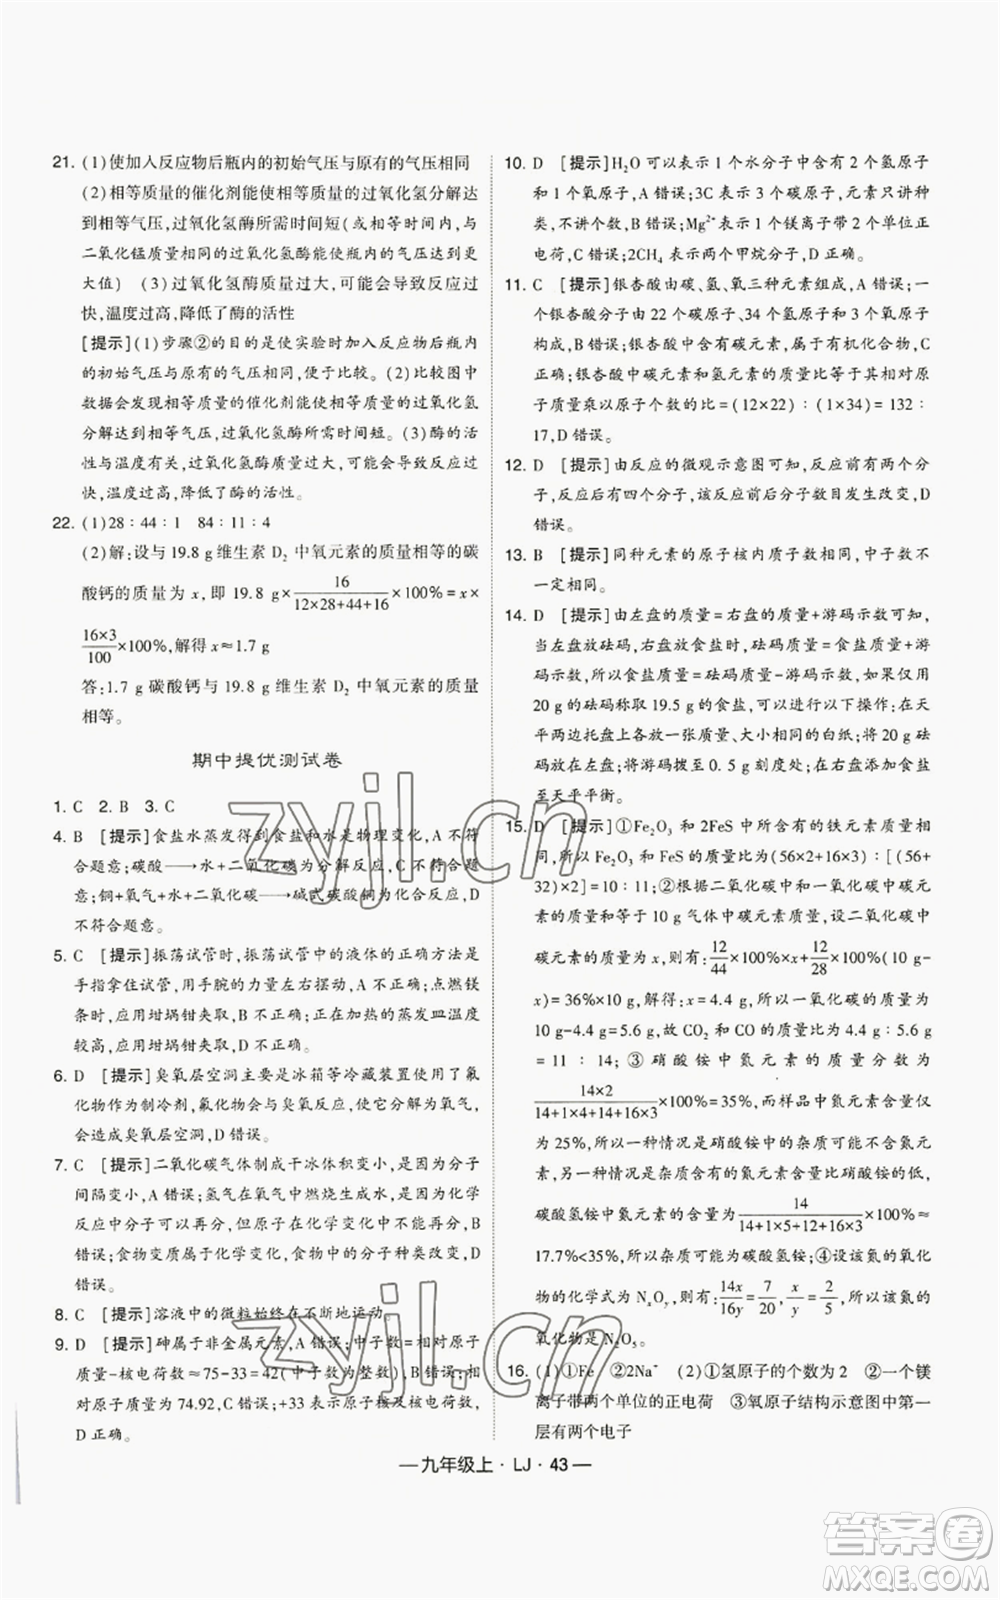 21. (1)使加入反应物后瓶内的初始气压与原有的气压相同
(2)相等质量的催化剂能使相等质量的过氧化氢分解达
到相等气压,过氧化氢酶所需时间短(或过氧化氢酶与
二氧化锰质量相同的过氧化氢酶能使瓶内的气压达到更
大值) (3)过氧化氢酶质量过大,可能会导致反应过
快,温度过高,降低了酶的活性
[提示](1)步骤②的目的是使实验时加入反应物后瓶内
的初始气压与原有的气压相等,便于比较。(2)比较图中
数据会发现相等质量的催化剂能使相等质量的过氧化氢
分解达到相等气压,过氧化氢酶所需时间短。(3)酶的活
性与温度有关,过氧化氢酶质量过大,可能会导致反应过
快,温度过高,降低了酶的活性。
22. (1)28∶44∶1 84∶11∶4
(2)解:设与 19.8 g 维生素 D2 中氧元素的质量相等的碳
酸钙的质量为 x,即 19.8 g×16/(12×28+44+16)×100%=x×
(16×3)/100×100%,解得 x≈1.7 g
答:1.7 g 碳酸钙与 19.8 g 维生素 D2 中氧元素的质量
相等。
期中提优测试卷
1. C 2. B 3. C
4. B [提示]食盐水蒸发得到食盐和水是物理变化,A 不符
合题意;碳酸→水+二氧化碳为分解反应,C 不符合题
意;铜+氧气+水+二氧化碳→碱式碳酸铜为化合反应,D
不符合题意。
5. C [提示]振荡试管时,振荡试管中的液体的正确方法是
手指拿住试管,用手腕的力量左右摆动,A 不正确;点燃镁
条时,应用坩埚钳夹取,B 不正确;正在加热的蒸发皿温度
较高,应用坩埚钳夹取,D 不正确。
6. D [提示]臭氧层空洞主要是冰箱等冷藏装置使用了氟
化物作为制冷剂,氟化物会与臭氧反应,使臭氧变为氧气,
会造成臭氧层空洞,D 错误。
7. C [提示]二氧化碳气体制成干冰体积变小,是因为分子
间隔变小,A 错误;氢气在氧气中燃烧生成水,是因为化学
反应中分子可以再分,但原子在化学变化中不能再分,B
错误;食物变质属于化学变化,食物中的分子种类改变,D
错误。
8. C [提示]溶液中的微粒始终在不断地运动。
9. D [提示]砷属于非金属元素,A 错误;中子数=相对原子
质量-核电荷数≈75-33=42(中子数为整数),B 错误;相
对原子质量为 74.92,C 错误;+33 表示原子核与核电荷数,
D 正确。
10. D [提示]H2O 可以表示 1 个水分子中含有 2 个氢原子
和 1 个氧原子,A 错误;3C 表示 3 个碳原子,元素只讲种
类,不讲个数,B 错误;Mg2+ 表示 1 个镁离子带 2 个单位正
电荷,C 错误;2CH4 表示两个甲烷分子,D 正确。
11. C [提示]银杏酸由碳、氢、氧三种元素组成,A 错误;一个
银杏酸分子由 22 个碳原子、34 个氢原子和 3 个氧原子
构成,B 错误;银杏酸中含有碳元素,属于有机化合物,C
正确;银杏酸中碳元素和氢元素的质量比等于其相对原
子质量乘以原子个数的比=(12×22)∶(1×34)=132∶
17,D 错误。
12. D [提示]由反应的微观示意图可知,反应前有两个分
子,反应后有四个分子,该反应分子数目发生改变,D
错误。
13. B [提示]同种元素的原子核内质子数相同,中子数不
一定相同。
14. D [提示]由左盘的质量=右盘的质量+游码示数可知,
当左盘放砝码,右盘放食盐时,砝码质量=食盐质量+游
码示数,所以食盐质量=砝码质量-游码示数。如果仅用
20 g 的砝码称取 19.5 g 的食盐,可进行以下操作:在天
平两边各放一张质量、大小相同的白纸,将 20 g 砝码
放在左盘,游码拨到 0.5 g 刻度处,在右盘添加食盐至
至天平平衡。
15. D [提示]①Fe2O3 和 2FeS 中所含有的铁元素质量相
同,所以 Fe2O3 和 FeS 的质量比为(56×2+16×3)∶[(56+
32)×2]=10∶11;②根据二氧化碳中和一氧化碳中碳元
素的质量和等于 10 g 气体中碳元素质量,设二氧化碳中
碳元素的质量为 x,则有:12/44×100%×x+12/28×100%(10 g-
x)=36%×10 g,解得:x=4.4 g,所以一氧化碳的质量为
10 g-4.4 g=5.6 g,故 CO2 和 CO 的质量比为 4.4∶5.6 g
=11∶14;③硝酸铵中氮元素的质量分数为
(14×2)/(14+1×4+14+16×3)×100%=35%,而样品中氮元素含量仅
为 25%,所以一种情况是硝酸铵中的杂质可能不含氮元
素,另外一种情况是杂质含有的氮元素质量分数较低,
碳酸氢铵中氮元素的含量为14/(14+1×5+12+16×3)×100%≈
17.7%<35%,所以杂质可能为碳酸氢铵;④设该氮的氧化
物的化学式为 NxOy,则有:14x/16y=7/20,x/y=2/5,所以该氮的
氧化物是 N2O5。
16. (1)①Fe ②2Na+ (2)①氢原子的个数为 2 ②一个镁
离子带两个单位的正电荷 ③氧原子结构示意图中第一
层有两个电子
—九年级上·LJ·43—
zyjl.cn
zyjl.cn
答案圈
MXQE.COM